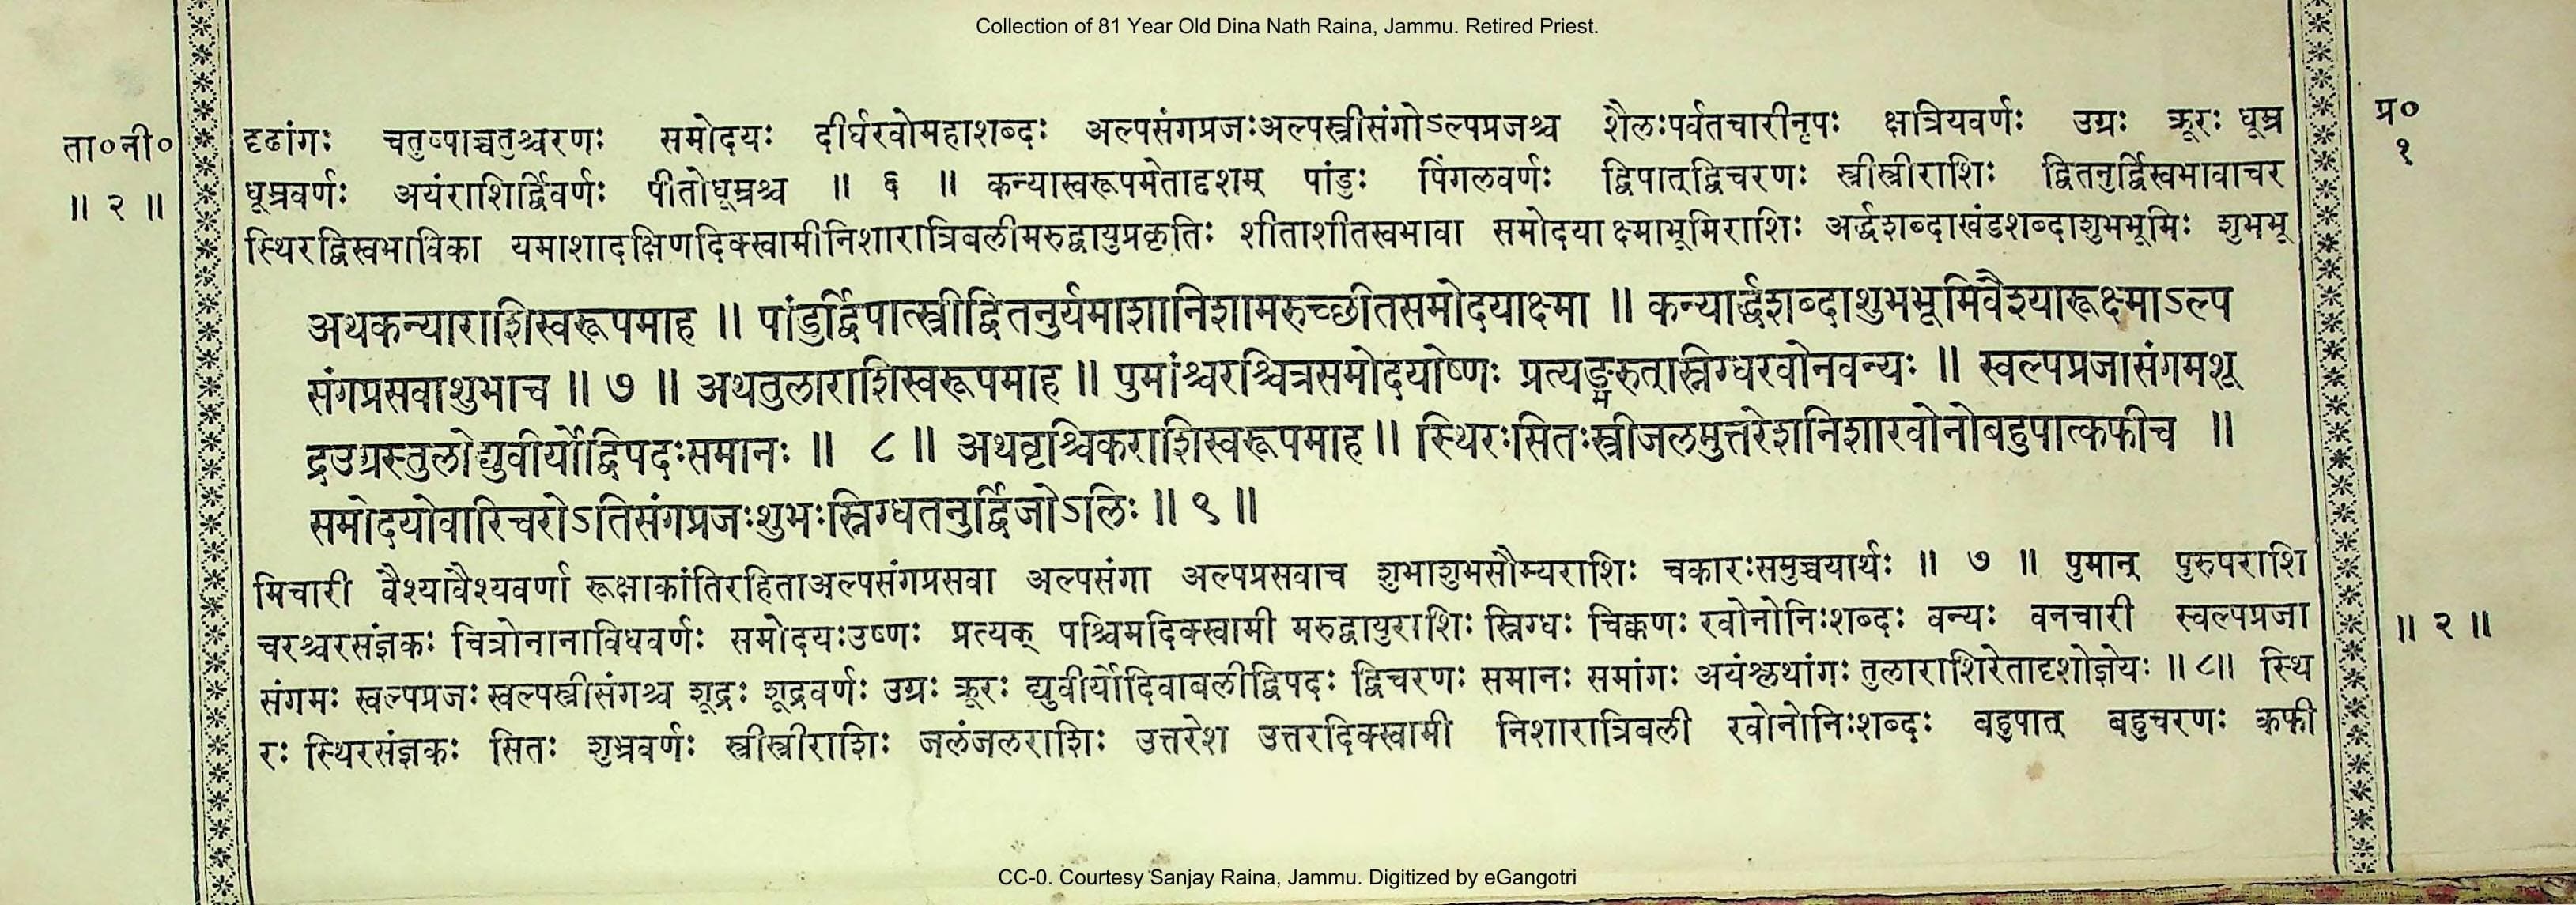 Collection of 81 Year Old Dina Nath Raina, Jammu. Retired Priest.
ता०नी०
॥ २ ॥
प्र०
१
दृढांगः चतुष्पाच्चतुश्चरणः समोदयः दीर्घरवोमहाशब्दः अल्पसंगप्रजःअल्पस्त्रीसंगोऽल्पप्रजश्च शैलःपर्वतचारीनृपः क्षत्रियवर्णः उग्रः क्रूरः धूम्र
धूम्रवर्णः अयंराशिर्द्विवर्णः पीतोधूम्रश्च ॥ ६ ॥ कन्यास्वरूपमेतादृशम् पांडुः पिंगलवर्णः द्विपात्द्विचरणः स्त्रीस्त्रीराशिः द्वितनुर्द्विस्वभावाचर
स्थिरद्विस्वभाविका यमाशादक्षिणदिक्स्वामीनिशारात्रिबलीमरुद्वायुप्रकृतिः शीताशीतस्वभावा समोदया क्ष्माभूमिराशिः अर्द्धशब्दाखंडशब्दाशुभभूमिः शुभभू
अथकन्याराशिस्वरूपमाह ॥ पांडुर्द्विपात्स्त्रीद्वितनुर्यमाशानिशामरुच्छीतसमोदयाक्ष्मा ॥ कन्यार्द्धशब्दाशुभभूमिवैश्यारूक्ष्माऽल्प
संगप्रसवाशुभाच ॥ ७ ॥ अथतुलाराशिस्वरूपमाह ॥ पुमांश्चरश्चित्रसमोदयोष्णः प्रत्यङ्मरुत्स्निग्धरवोनवन्यः ॥ स्वल्पप्रजासंगमशू
द्रउग्रस्तुलोद्युवीर्योद्विपदःसमानः ॥ ८ ॥ अथवृश्चिकराशिस्वरूपमाह ॥ स्थिरःसितःस्त्रीजलमुत्तरेशनिशारवोनोबहुपात्कफीच ॥
समोदयोवारिचरोऽतिसंगप्रजःशुभःस्निग्धतनुर्द्विजोऽलिः ॥ ९ ॥
मिचारी वैश्यावैश्यवर्णा रूक्षाकांतिरहिताअल्पसंगप्रसवा अल्पसंगा अल्पप्रसवाच शुभाशुभसौम्यराशिः चकारःसमुच्चयार्थः ॥ ७ ॥ पुमान् पुरुषराशि
चरश्चरसंज्ञकः चित्रोनानाविधवर्णः समोदयःउष्णः प्रत्यक् पश्चिमदिक्स्वामी मरुद्वायुराशिः स्निग्धः चिक्कणः रवोनोनिःशब्दः वन्यः वनचारी स्वल्पप्रजा
संगमः स्वल्पप्रजः स्वल्पस्त्रीसंगश्च शूद्रः शूद्रवर्णः उग्रः क्रूरः द्युवीर्योदिवाबलीद्विपदः द्विचरणः समानः समांगः अयंश्लथांगः तुलाराशिरेतादृशोज्ञेयः ॥ ८॥ स्थि
रः स्थिरसंज्ञकः सितः शुभ्रवर्णः स्त्रीस्त्रीराशिः जलंजलराशिः उत्तरेश उत्तरदिक्स्वामी निशारात्रिबली रवोनोनिःशब्दः बहुपात् बहुचरणः कफी
॥ २ ॥
CC-0. Courtesy Sanjay Raina, Jammu. Digitized by eGangotri